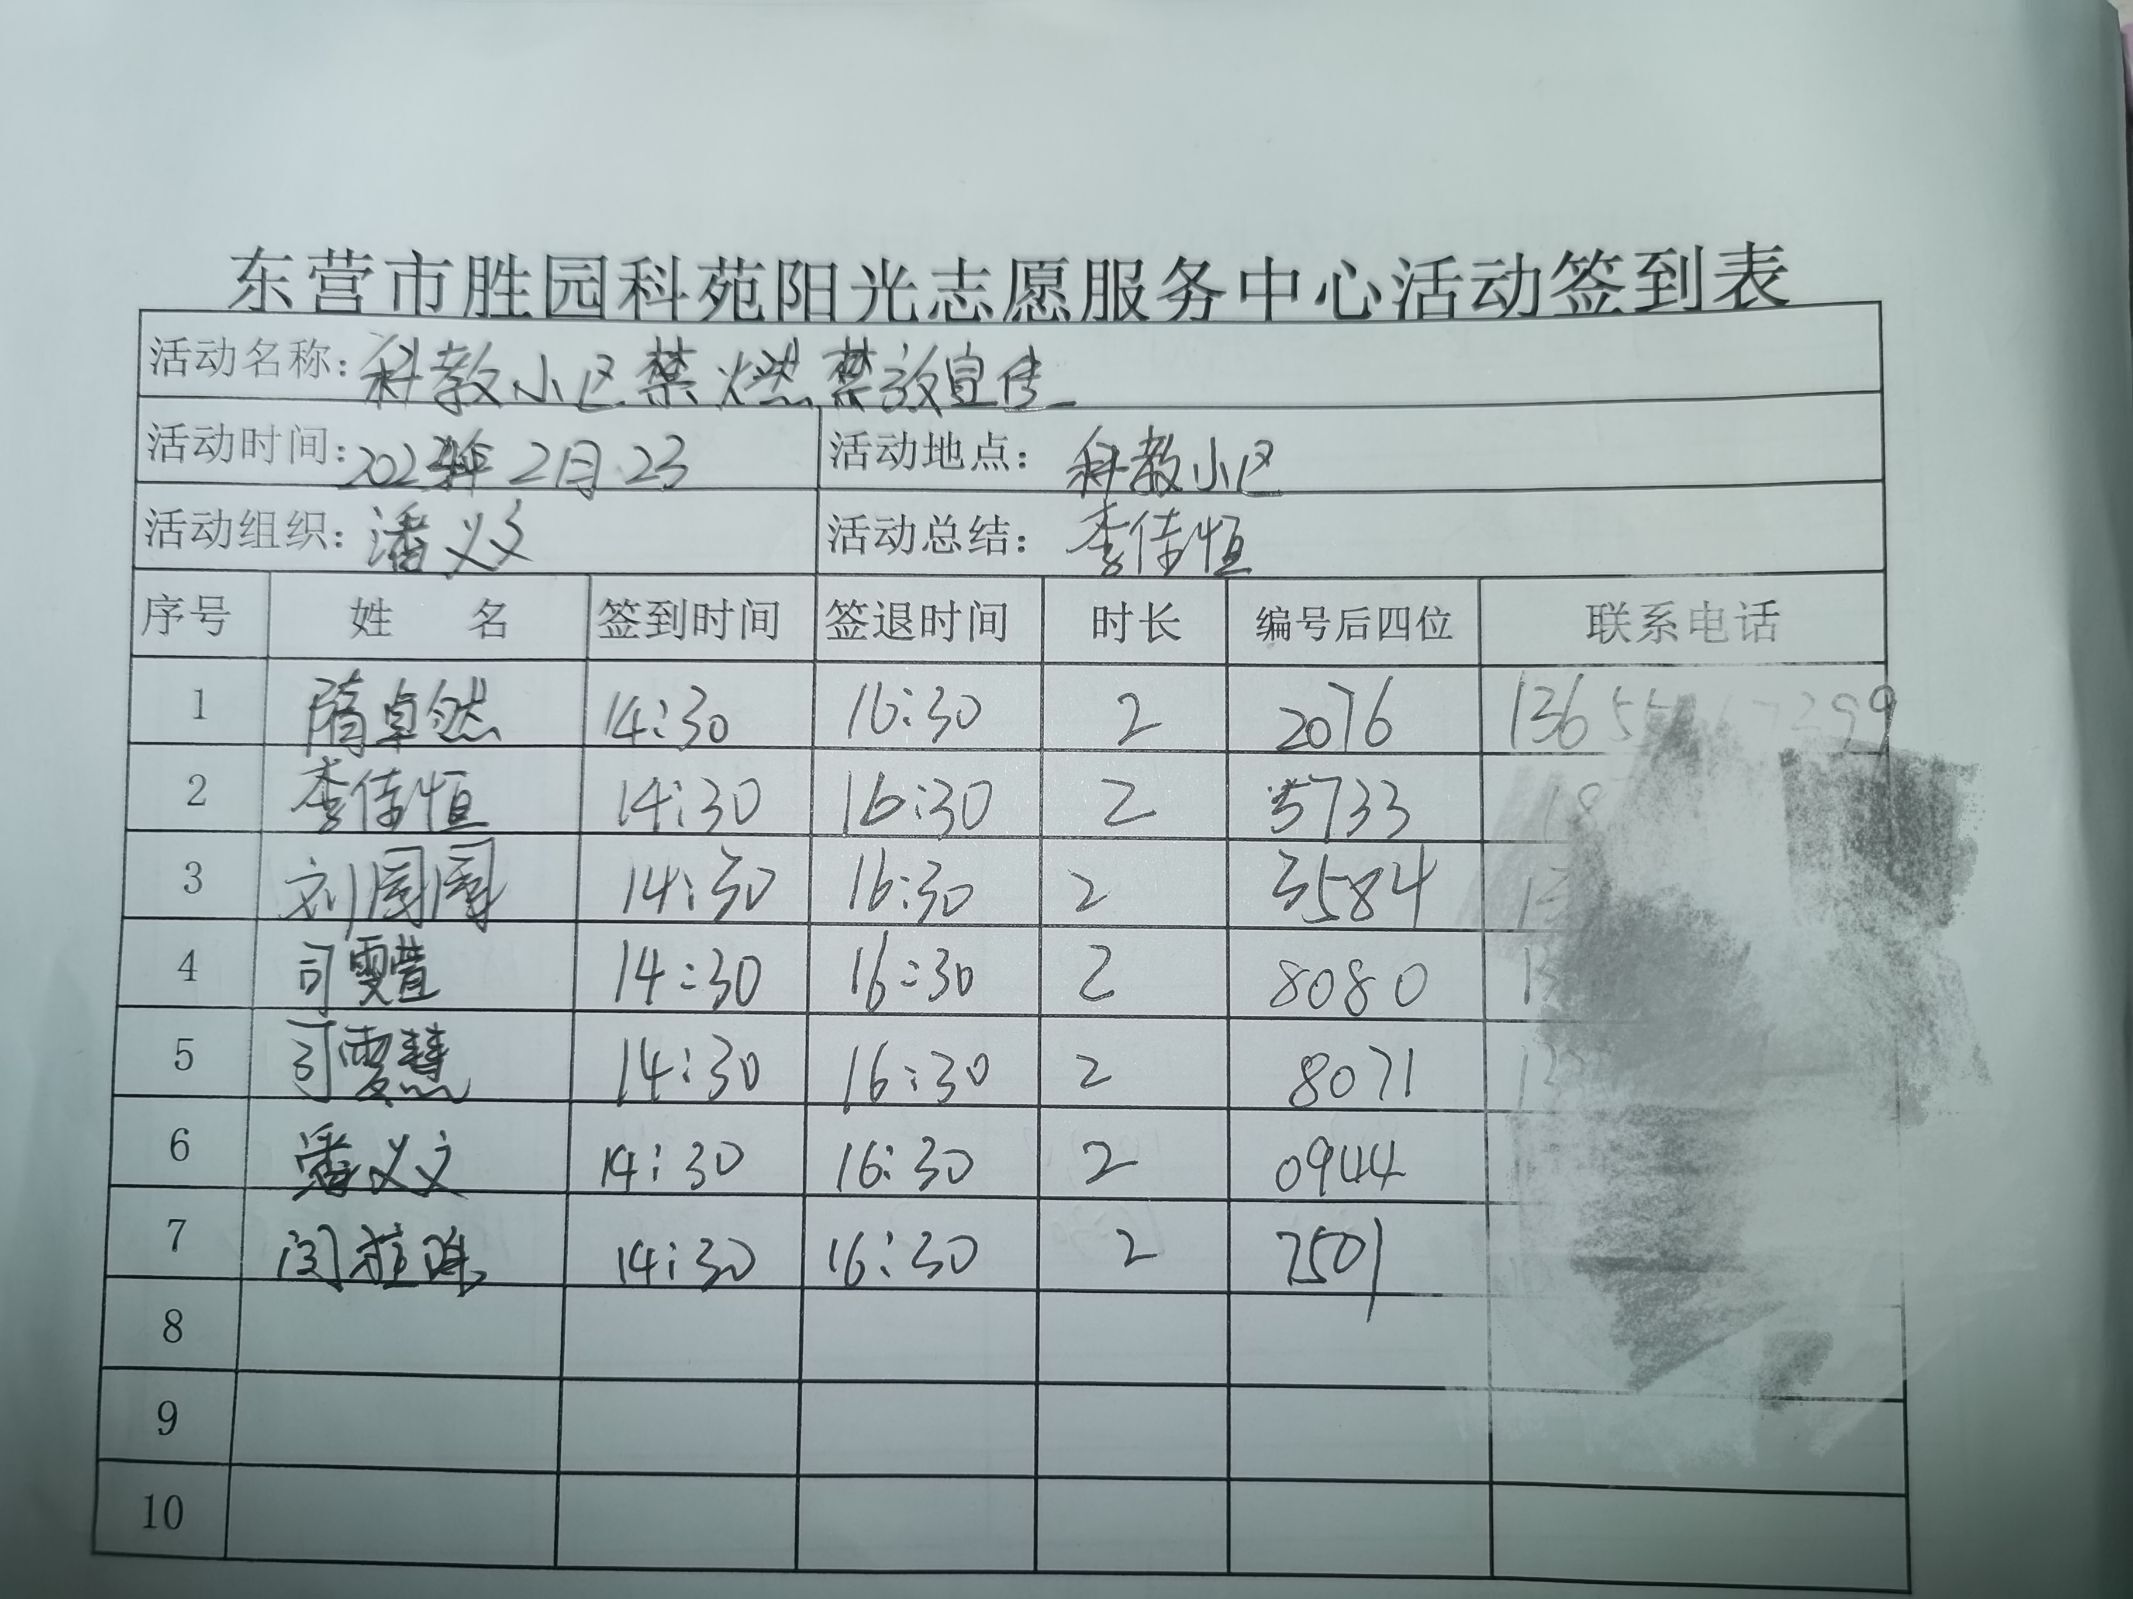 东营市胜园科苑阳光志愿服务中心活动签到表
活动名称：科教小区禁燃禁放宣传
活动时间：2024年2月23 活动地点：科教小区
活动组织：潘义文 活动总结：李佳恒
序号 姓名 签到时间 签退时间 时长 编号后四位 联系电话
1 隋卓然 14:30 16:30 2 2076
2 李佳恒 14:30 16:30 2 5733
3 刘圊圊 14:30 16:30 2 3584
4 司雯萱 14:30 16:30 2 8080
5 司雯慧 14:30 16:30 2 8071
6 潘义文 14:30 16:30 2 0944
7 闵 14:30 16:30 2 7501
8
9
10